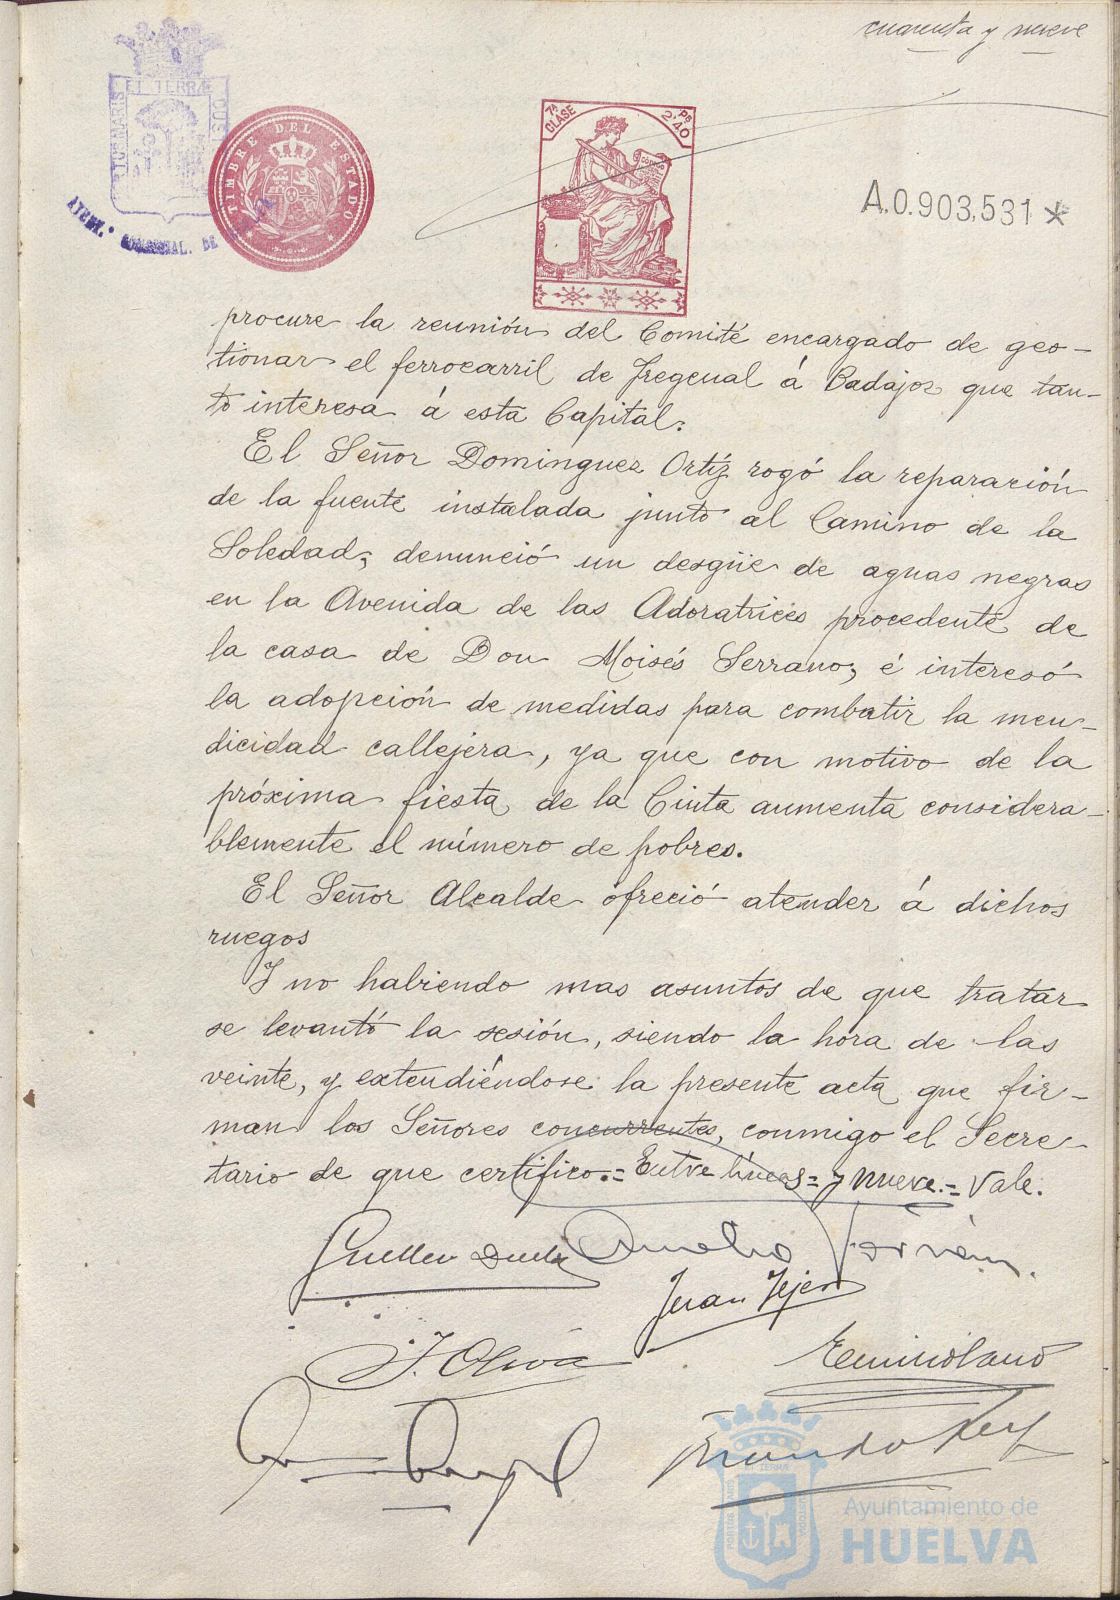 cuarenta y nueve
TUS MARIS
ET TERRÆ
CUST
AYUNT.º
DE
TIMBRE DEL ESTADO
7ª CLASE
Ps 2'40
A.0.903,531 *
procure la reunión del Comité encargado de ges-
tionar el ferrocarril de Fregenal á Badajoz que tan-
to interesa á esta Capital.
El Señor Dominguez Ortíz rogó la reparación
de la fuente instalada junto al Camino de la
Soledad; denunció un desgüe de aguas negras
en la Avenida de las Adoratrices procedente de
la casa de Don Moisés Serrano; é interesó
la adopción de medidas para combatir la men-
dicidad callejera, ya que con motivo de la
próxima fiesta de la Cinta aumenta considera-
blemente el número de pobres.
El Señor Alcalde ofreció atender á dichos
ruegos
Y no habiendo mas asuntos de que tratar
se levantó la sesión, siendo la hora de las
veinte, y extendiéndose la presente acta que fir-
man los Señores concurrentes, conmigo el Secre-
tario de que certifico.= Entre líneas= y nueve.= Vale.
Juan Tejero
J. Oliva
Ayuntamiento de
HUELVA